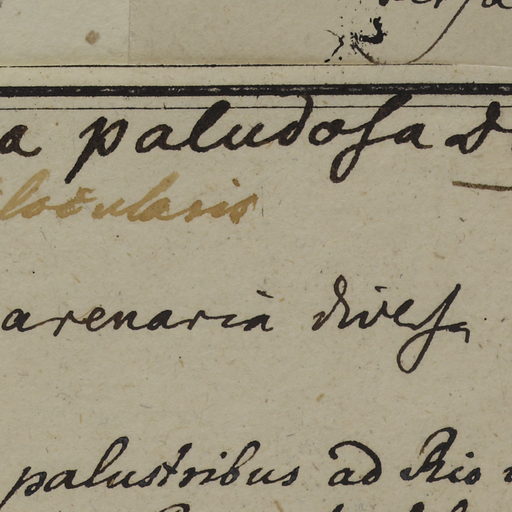 a paludosa D
locularis
arenaria divers
palustribus ad Rio